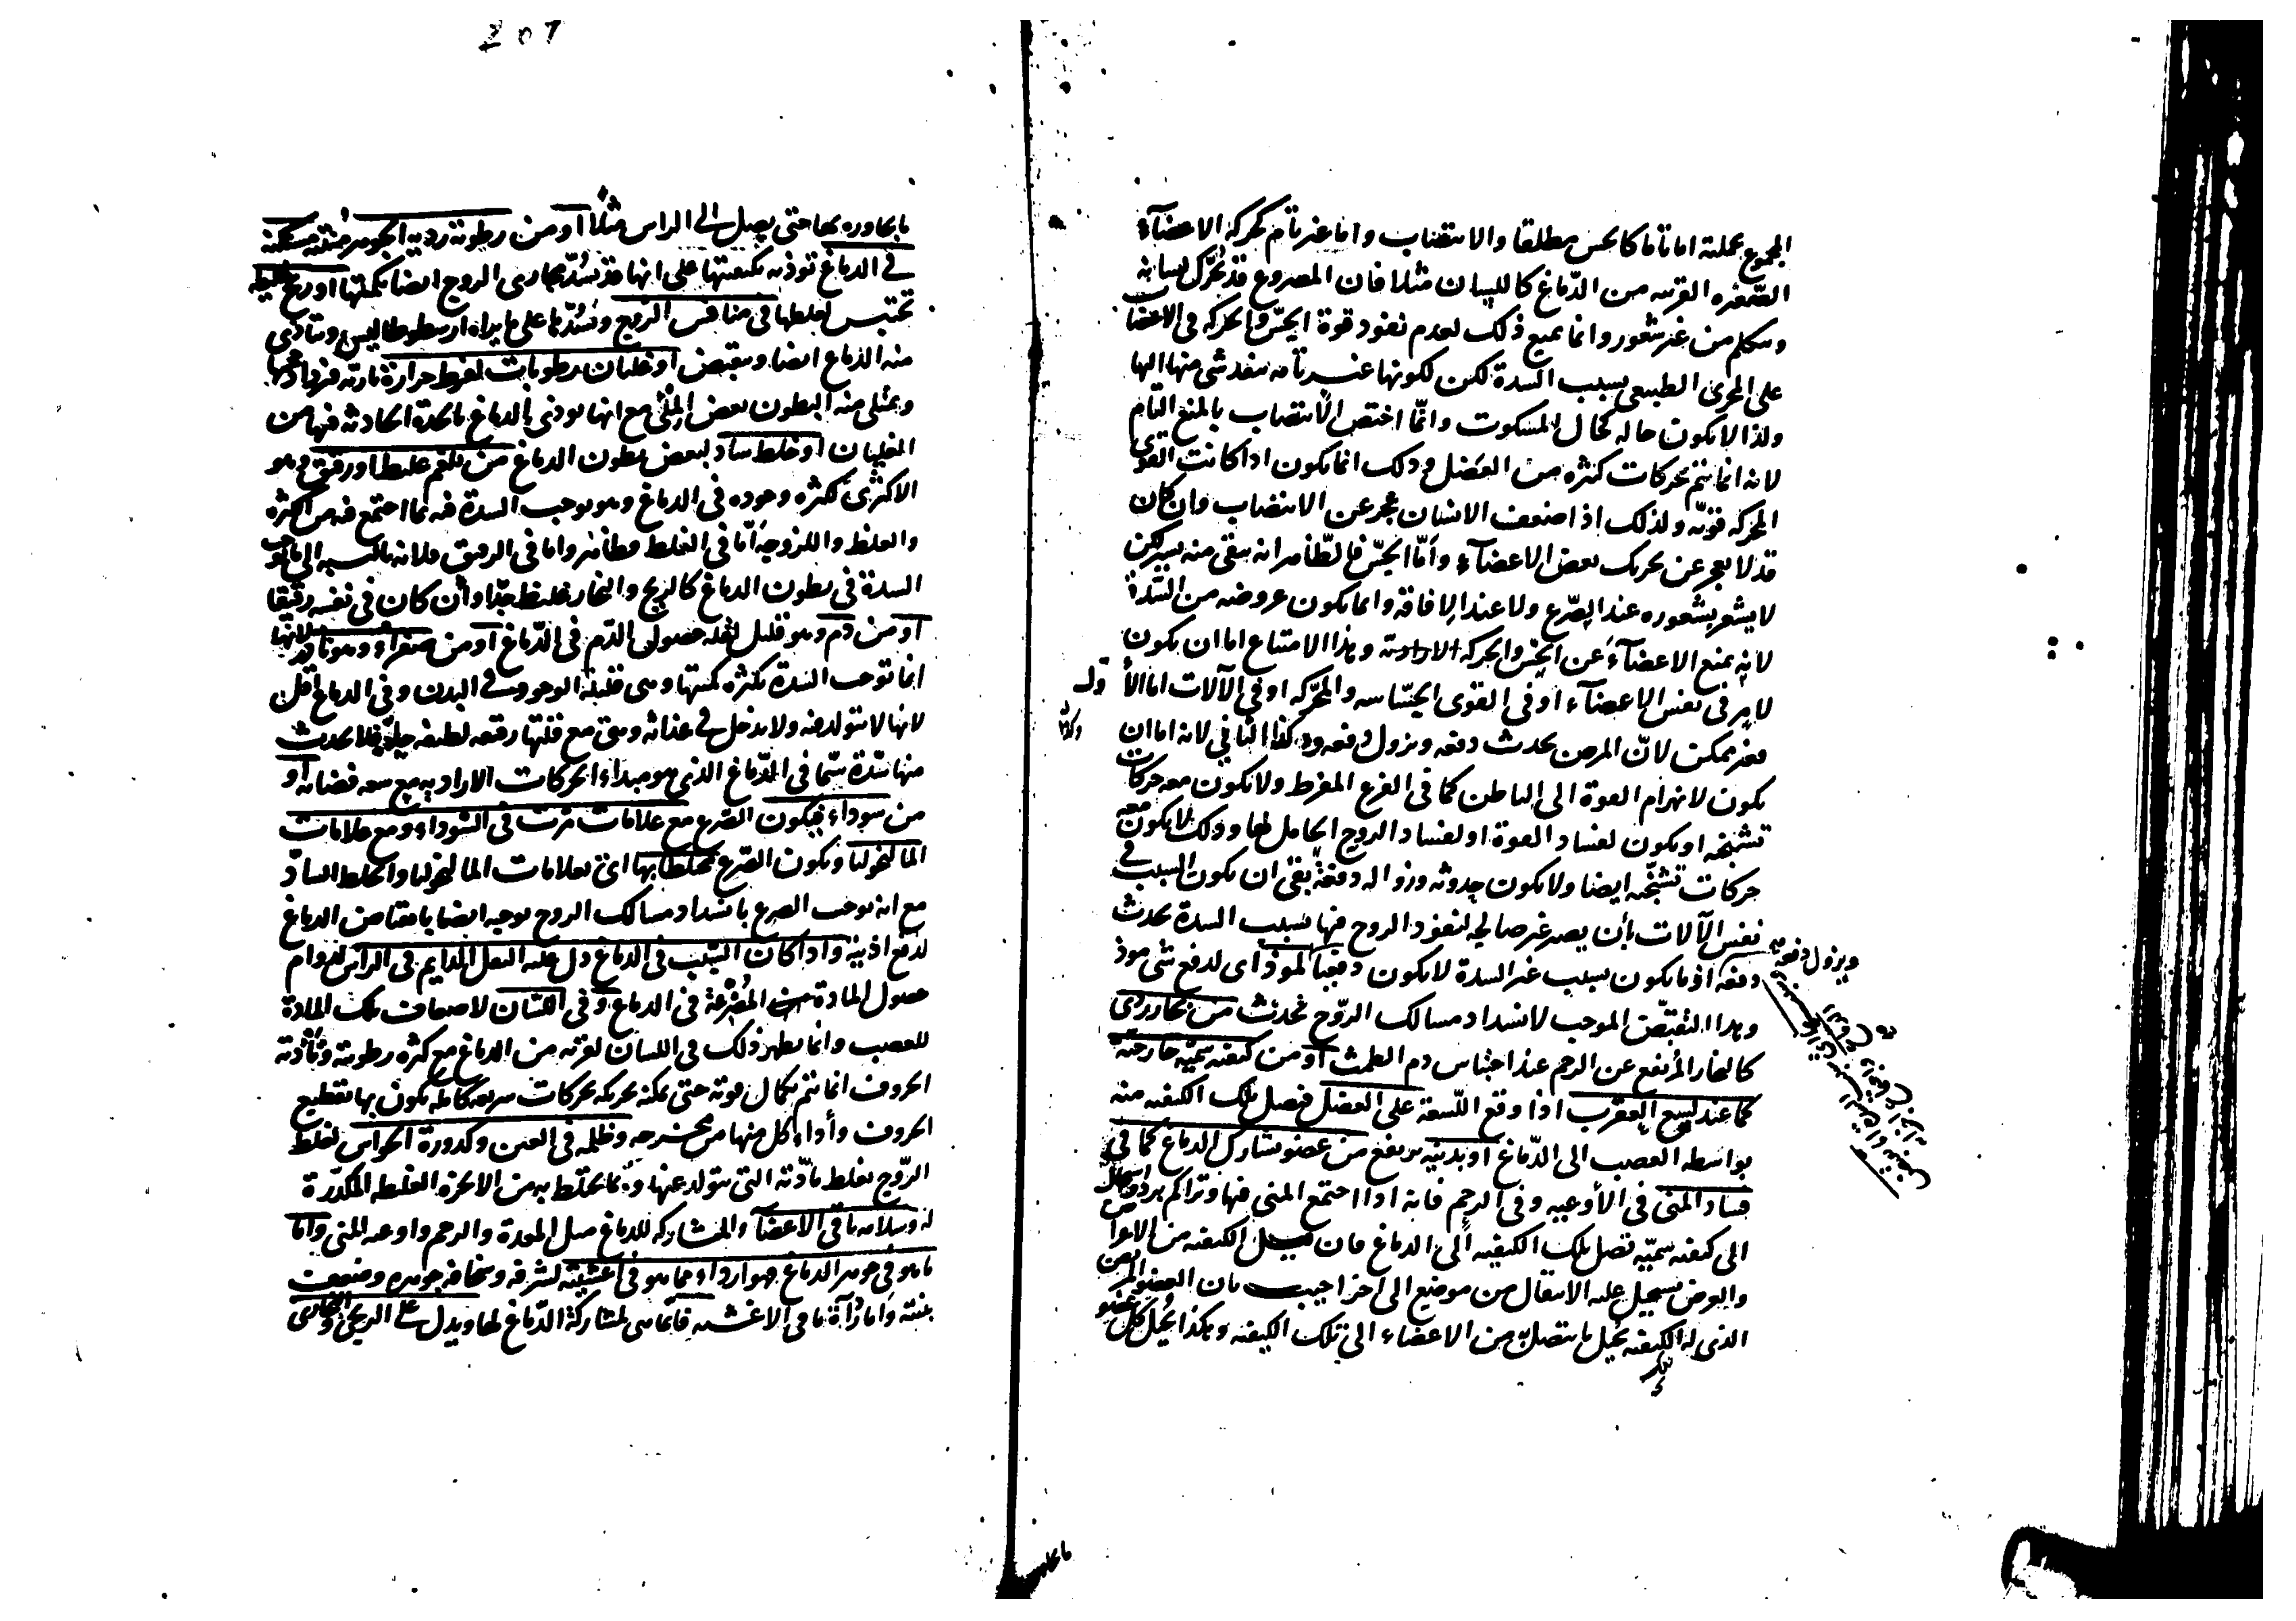 المجموع بجملته اما تاما كالحس مطلقا والانتصاب واما غير تام كحركة الاعضآء
الصغيره القريبه من الدّماغ كاللسان مثلا فان المصروع قد يُحرّك لسانه
ويتكلم من غير شعور وانما يمنع ذلك لعدم نفوذ قوة الحسّ والحركه فى الاعضا
على المجرى الطبيعى بسبب السدة لكن لكونها غير تامه ينفذ شى منها اليها
ولذا لا يكون حاله كحال المسكوت وانّما اختص الانتصاب بالمنع التام
لانه انما يتم بحركات كثيره من العضل وذلك انما يكون اذا كانت القوى
المحركه قويّه ولذلك اذا ضعف الانسان عجز عن الانتصاب وان كان
قد لا يعجز عن تحريك بعض الاعضآء وأمّا الحسّ فالظّاهر انه يبقى منه يسير لكن
لا يشعر بشعوره عند الصّرع ولا عند الافاقه وانما يكون عروضه من السّدة
لانه يمنع الاعضآء عن الحسّ والحركه الارادية وهذا الامتناع اما ان يكون
لامر فى نفس الاعضآء او فى القوى الحسّاسه والمحرّكه او فى الآلات اما الأول
فغير ممكن لانّ المرض يحدث دفعه ويزول دفعه وكذا الثانى لانه اما ان
يكون لانهزام القوة الى الباطن كما فى الفزع المفرط ولا يكون معه حركات
تشنجيه او يكون لفساد القوة او لفساد الروح الحامل لها وذلك لا يكون معه
حركات تشنّجيّه ايضا ولا يكون حدوثه وزواله دفعةً بقى ان يكون السبب فى
نفس الآلات بأن يصير غير صالحه لنفوذ الروح فيها بسبب السدة يحدث
دفعه اذ ما يكون بسبب غير السدة لا يكون دفعيا لموذ اى لدفع شى موذ
ويزول دفعه
وهذا التقبّض الموجب لانسداد مسالك الروّح يحدث من بخار ردى
كالبخار المرتفع عن الرحم عند احتباس دم الطمث أو من كيفيه سمّيّه خارجيّه
كما عند لسع العقرب اذا وقع اللّسعة على العضل فيصل تلك الكيفيه منه
بواسطه العصب الى الدّماغ او بدنيّه يرتفع من عضو يشارك الدماغ كما فى
فساد المنى فى الأوعيه وفى الرحم فانه اذا احتمع المنى فيها وتراكم برد واستحال
الى كيفيه سمّيّه تصل تلك الكيفيه إلى الدماغ فان قيل الكيفيه من الاعراض
والعرض يستحيل عليه الانتقال من موضع الى اخر اجيب بان العضو المريض
الذى له الكيفيه يُحيل ما يتصل به من الاعضاء الى تلك الكيفيه وهكذا يُحيل كل عضو
ما يجاوره
207
ما يجاوره بها حتى يصل الى الراس مثلاً أو من رطوبة رديّة الجوهر متمكنه
فى الدماغ توذيه بكيفيتها على انها قد تسُدّ مجارى الروح ايضا بكميّتها او ريح غليظه
تحتبس لغلظها فى منافس الروح وتسُدّها على ما يراه ارسطوطاليس ويتأذى
منه الدماغ ايضا ويتقبض أو غليان رطوبات لفرط حرارة ناريّه فيزداد حجمها
ويمتلى منه البطون بعض المَلْئ مع انها توذى الدماغ بالحدة الحادثه فيها من
الغليان او خلط ساد لبعض بطون الدماغ من بلغم غليظ او رقيق وهو
الاكثرى لكثره وجوده فى الدماغ وهو يوجب السدة فيه بما اجتمع فيه من الكثره
والغلظ واللزوجه امّا فى الغليظ فظاهر واما فى الرقيق فلانه بالنسبه الى ما يوجب
السدة فى بطون الدماغ كالريح والبخار غليظ جدّا وأن كان فى نفسه رقيقا
أو من دم وهو قليل لقله حصول الدّم فى الدّماغ أو من صفرآء وهو نادر لانها
انما توجب السّدة بكثره كميتها وهى قليلة الوجود فى البدن وفى الدماغ اقل
لانها لا يتولد فيه ولا يدخل فى غذائه وهى مع قلتها رقيقه لطيفه جدّا فلا يحدث
منها سُدّة سيّما فى الدّماغ الذى هو مبداء الحركات الاراديه مع سعه فضائه أو
من سوداء فيكون الصّرع مع علامات مرّت فى السّوداء ومع علامات
المالنخوليا ويكون الصّرع مختلطا بها اى بعلامات المالنخوليا والخلط السادّ
مع انه يوجب الصرع بانسداد مسالك الروح يوجبه ايضا بانقباض الدماغ
لدفع اذيته واذا كان السّبب فى الدماغ دل عليه الثقل الدايم فى الراس لدوام
حصول المادة المُصْرِعة فى الدماغ وفى اللّسان لاضعاف تلك المادة
للعصب وانما يظهر ذلك فى اللسان لقربه من الدماغ مع كثره رطوبته وتأدية
الحروف انما تتم بكمال قوته حتى يمكنه تحريكه بحركات سريعه كامله يكون بها تقطيع
الحروف وأداء كل منها من مخرجه وظلمه فى العين وكدورة الحواس لغلظ
الرّوح بغلظ مادّته التى يتولد عنها وبما يختلط به من الابخره الغليظه المكدّرة
له وسلامه باقى الاعضآ والمشاركه للدماغ مثل المعدة والرحم واوعيه المنى واما
ما هو فى جوهر الدماغ فهو اردآء مما هو فى اغشيته لشرفه وسخافه جوهره وضعف
بنيته وأما رداءة ما فى الاغشيه فانما هى لمشاركة الدّماغ لها ويدل على الريحى والبخارى